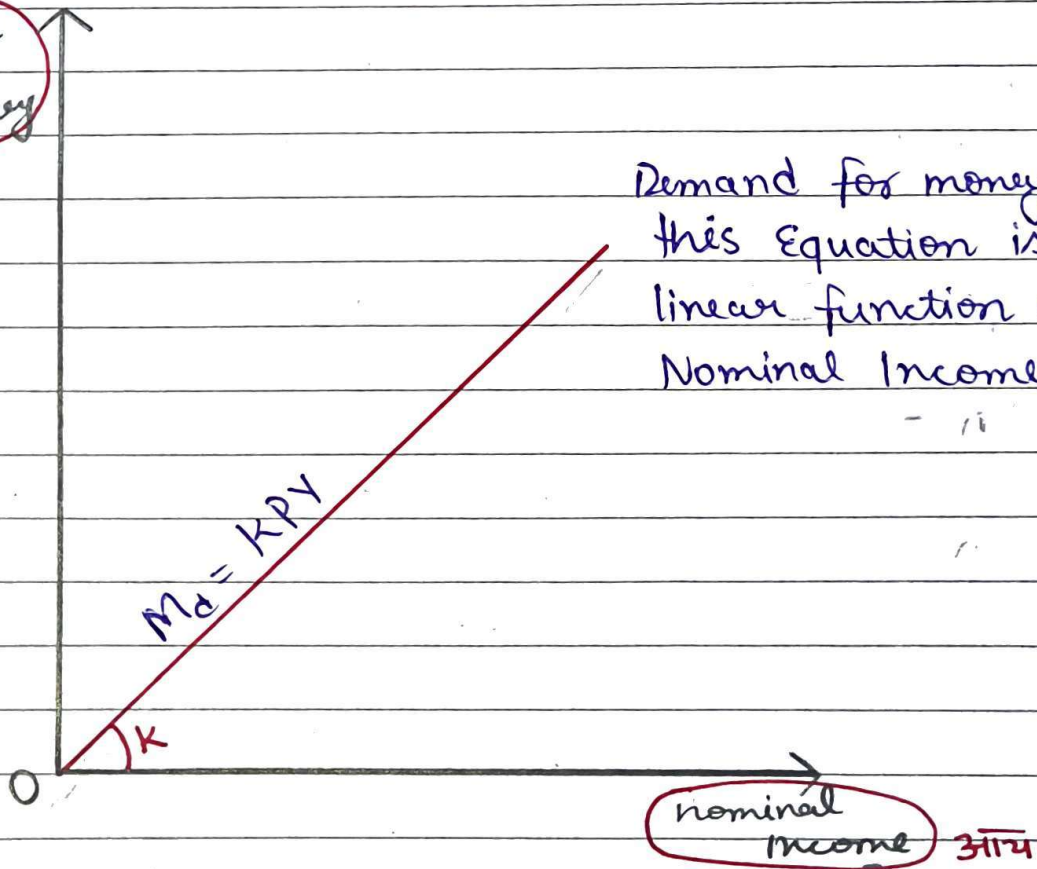 Demand for money
this Equation is
linear function
Nominal Income
Md = KPY
K
O
nominal
income
आय